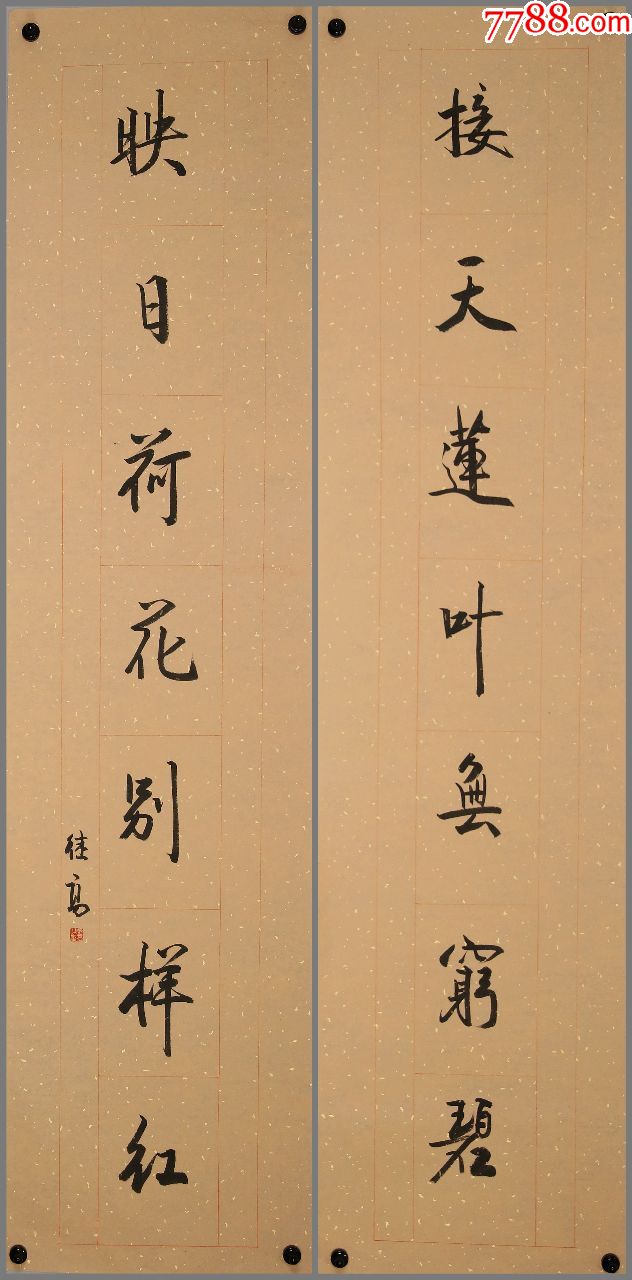 7788.com
接天蓮叶無窮碧
映日荷花别样红